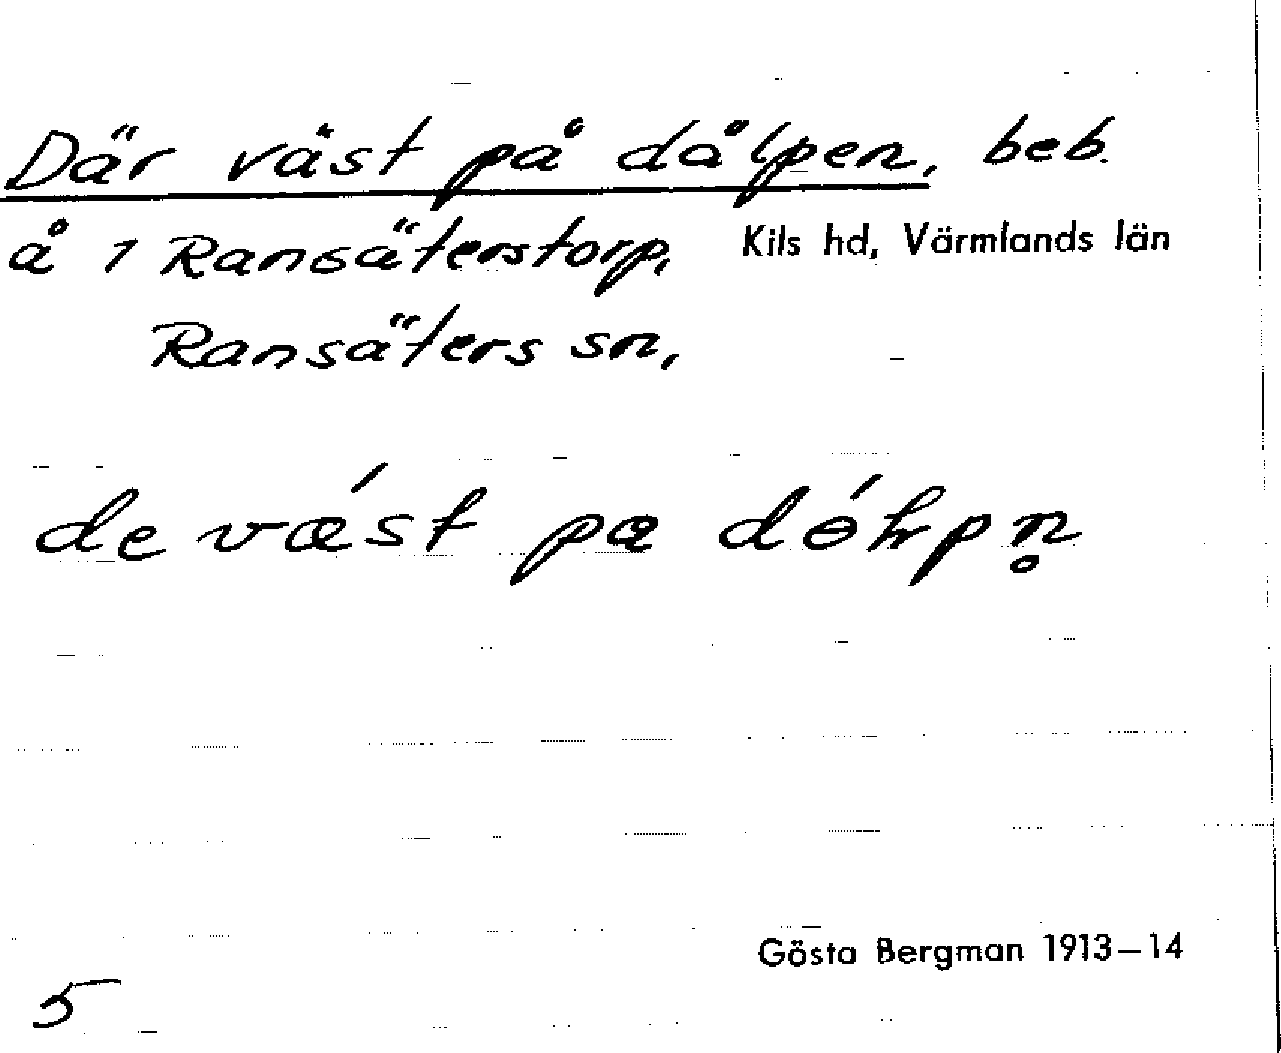 Där väst på dålpen, beb.
å 1 Ransäterstorp, Kils hd, Värmlands län
Ransäters sn,
de væst pa
Gösta Bergman 1913–14
5